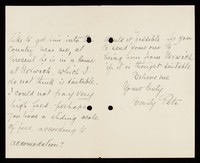 like to get him into the
country near me, at
present he is in a home
at Norwich which I
do not think is suitable.
I could not pay very
high fees perhaps
you have a sliding scale
of fees, according to
accomodation?
Would it possible for you
to send some one
bring him from Norwich
if it is thought suitable.
Excuse me
Yours truly
Emily